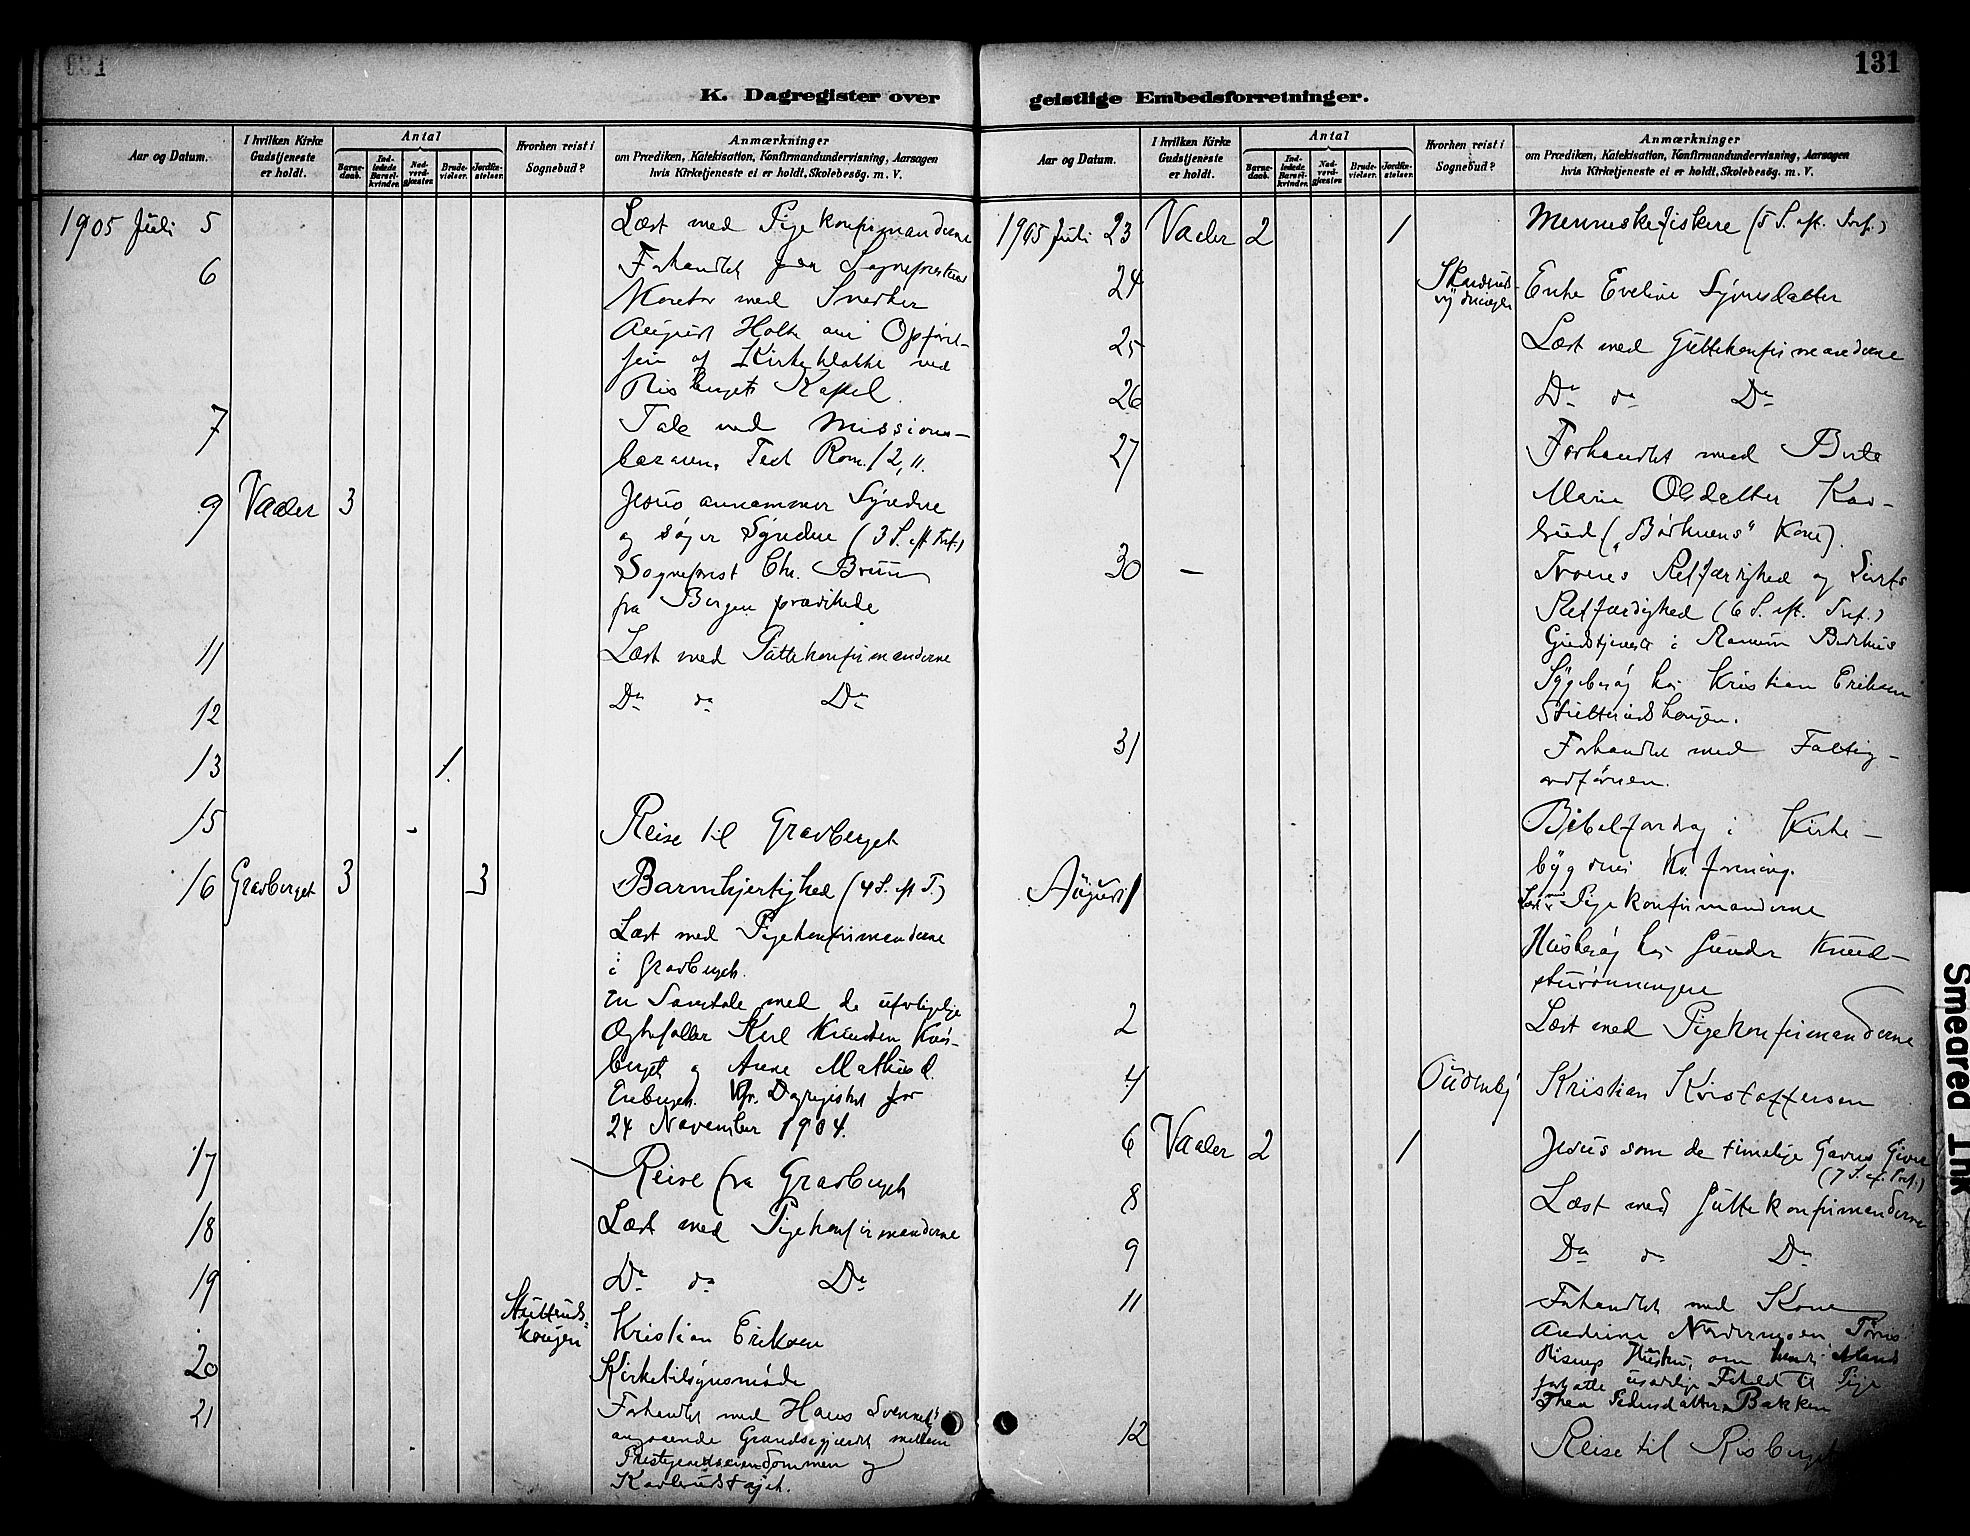 131
K. Dagregister over
Aar og Datum.
I hvilken Kirke Gudstjeneste er holdt.
Antal
Barnedaab.
Indledede Barselkvinder.
Nadverdgjæster.
Brudevielser.
Jordfæstelser.
Hvorhen reist i Sognebud?
Anmærkninger
om Prædiken, Katekisation, Konfirmandundervisning, Aarsagen
hvis Kirketjeneste ei er holdt, Skolebesøg. m. V.
1905 Juli 5 Læst med Pigekonfirmanderne
6 Forhandlet paa
med Snedker
August Holth om Opførel-
sen af Kirkeklokke ved
Risbergets Kapel.
7 Tale ved Missions-
bazaren. Text Rom. 12, 11.
9 Vaaler 3 Jesus annammer Syndere
og søger Syndere (3 S. eft. Tref.)
Sogneprest Chr. Bruun
fra Bergen prædikede
11 Læst med Guttekonfirmanderne
12 Do do Do
13 1.
15 Reise til Gravberget
16 Gravberget 3 3 Barmhjertighed (4 S. eft T.)
Læst med Pigekonfirmanderne
i Gravberget.
En Samtale med de
Karl Knudsen
berget og Anne Mathisd.
Enberget. Kfr. Dagregistret for
24 November 1904.
17 Reise fra Gravberget
18 Læst med Pigekonfirmanderne
19 Do do Do
Kristian Eriksen
20 Kirketilsynsmøde
21 Forhandlet med Hans
angaaende mellem
Prestegjeldseiendommen og
131
geistlige Embedsforretninger.
Aar og Datum.
I hvilken Kirke Gudstjeneste er holdt.
Antal
Barnedaab.
Indledede Barselkvinder.
Nadverdgjæster.
Brudevielser.
Jordfæstelser.
Hvorhen reist i Sognebud?
Anmærkninger
om Prædiken, Katekisation, Konfirmandundervisning, Aarsagen
hvis Kirketjeneste ei er holdt, Skolebesøg. m. V.
1905 Juli 23 Vaaler 2 1 Menneskefiskere (5 S. eft. Tref.)
24 Enke Eveline Syversdatter
25 Læst med Guttekonfirmanderne
26 Do do Do
27 Forhandlet med Berte
Marie Olsdatter
Kone).
30 — Troens Retfærdighed og Livets
Retfærdighed (6 S. eft. Tref.)
Gudstjeneste i
Sygebesøg hos Kristian Eriksen
31 Forhandlet med Fattig-
ordføreren.
Bibelforedrag i Kirke-
bygdens Kv. forening.
August 1 Læst m. Pigekonfirmanderne
Husbesøg hos Gunder
2 Læst med Pigekonfirmanderne
4 Kristian Kristoffersen
6 Vaaler 2 1 Jesus som de timelige Gavers Giver
(7 S. ef. Tref.)
8 Læst med Guttekonfirmanderne
9 Do do Do
11 Forhandlet med Kone
Andrine Nordermoen
Hustru, om hendes Mands
fortsatte usædelige Forhold til Pige
Thea Pedersdatter Bakken
12 Reise til Risberget
Smeared Ink